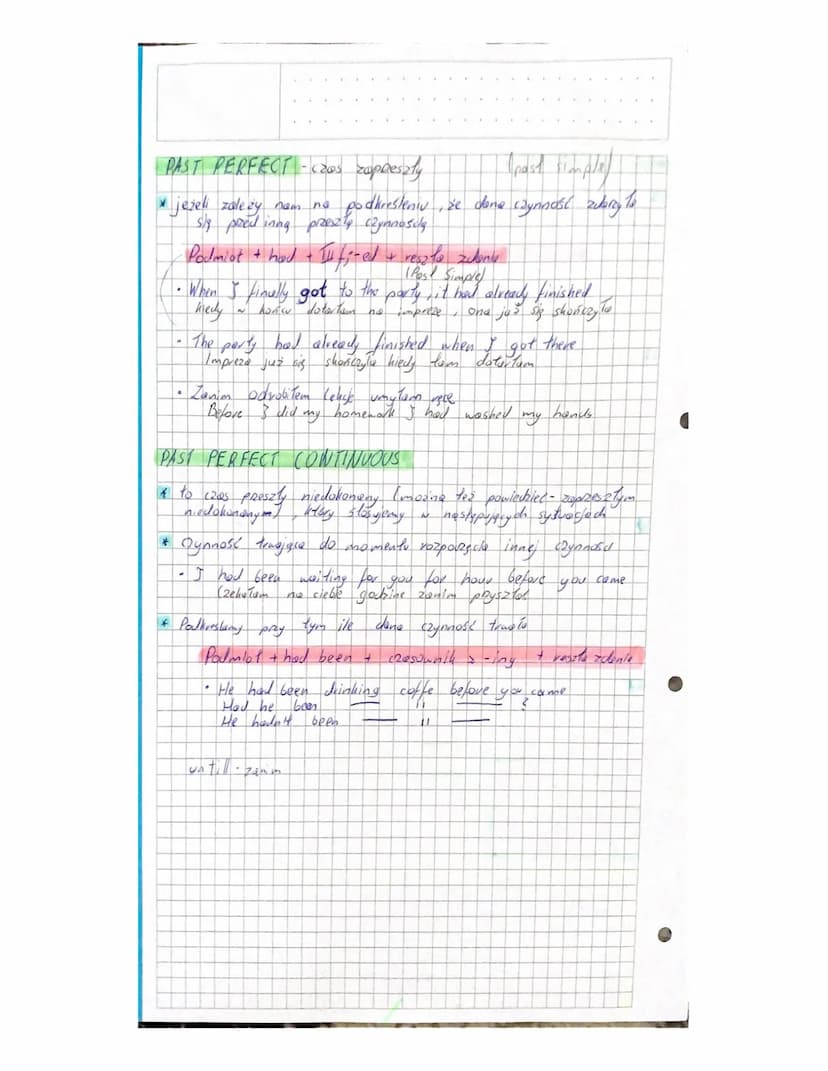 PAST PERFECT - czas zaprzeszły (past simple)
* jeżeli zależy nam na podkreśleniu, że dana czynność zdarzyła
się przed inną przeszłą czynnością
Podmiot + had + III f;-ed + reszta zdania
(Past Simple)
• When I finally got to the party, it had already finished
kiedy w końcu dotarłam na imprezę, ona już się skończyła
• The party had already finished when I got there
Impreza już się skończyła kiedy tam dotarłam
• Zanim odrobiłam lekcje umyłam ręce
Before I did my homework I had washed my hands
PAST PERFECT CONTINUOUS
* to czas przeszły niedokonany (można też powiedzieć - zaprzeszłym
niedokonanym), który stosujemy w następujących sytuacjach
* Czynność trwająca do momentu rozpoczęcia innej czynności
• I had been waiting for you for hour before you came
Czekałam na ciebie godzinę zanim przyszłaś
* Podkreślamy przy tym ile dana czynność trwała
Podmiot + had been + czasownik z -ing + reszta zdania
• He had been drinking coffe before you came
Had he been — " — ?
He hadn't been — " —
untill - zanim